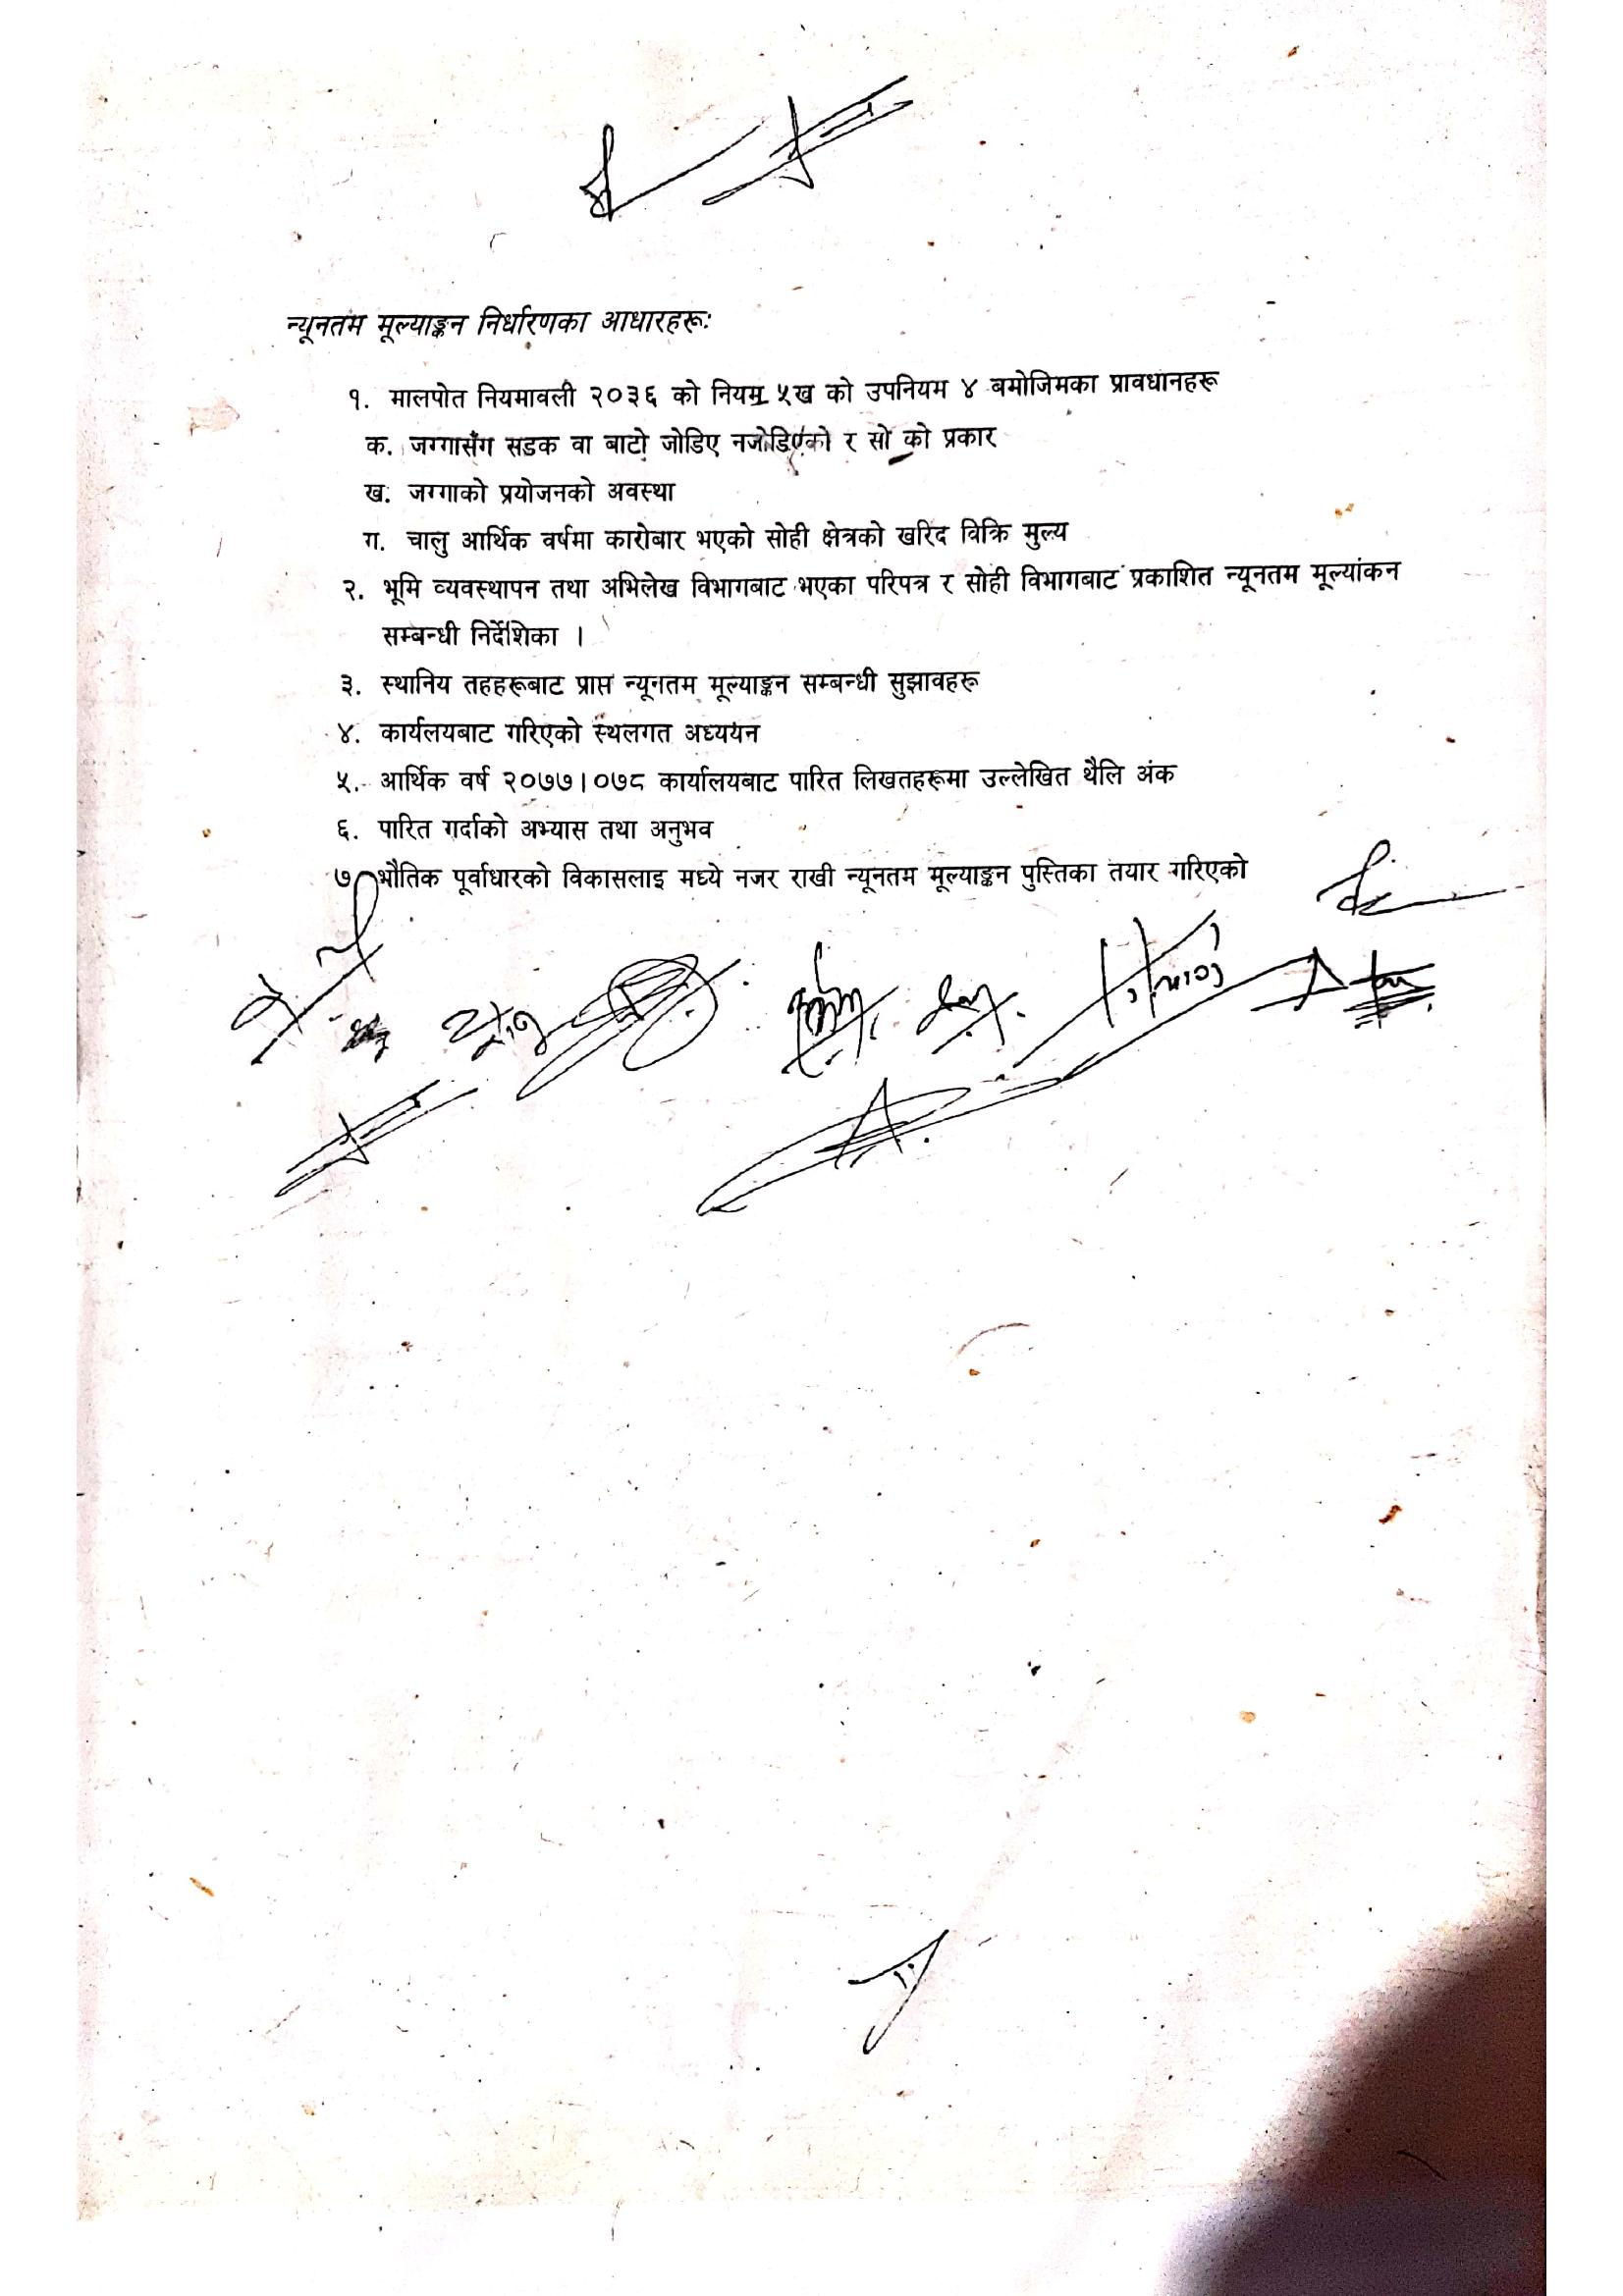 न्यूनतम मूल्याङ्कन निर्धारणका आधारहरू:
१. मालपोत नियमावली २०३६ को नियम ५ख को उपनियम ४ बमोजिमका प्रावधानहरू
क. जग्गासँग सडक वा बाटो जोडिए नजोडिएको र सो को प्रकार
ख. जग्गाको प्रयोजनको अवस्था
ग. चालु आर्थिक वर्षमा कारोबार भएको सोही क्षेत्रको खरिद विक्रि मुल्य
२. भूमि व्यवस्थापन तथा अभिलेख विभागबाट भएका परिपत्र र सोही विभागबाट प्रकाशित न्यूनतम मूल्यांकन
सम्बन्धी निर्देशिका ।
३. स्थानिय तहहरूबाट प्राप्त न्यूनतम मूल्याङ्कन सम्बन्धी सुझावहरू
४. कार्यलयबाट गरिएको स्थलगत अध्ययन
५. आर्थिक वर्ष २०७७।०७८ कार्यालयबाट पारित लिखतहरूमा उल्लेखित थैलि अंक
६. पारित गर्दाको अभ्यास तथा अनुभव
७. भौतिक पूर्वाधारको विकासलाइ मध्ये नजर राखी न्यूनतम मूल्याङ्कन पुस्तिका तयार गरिएको